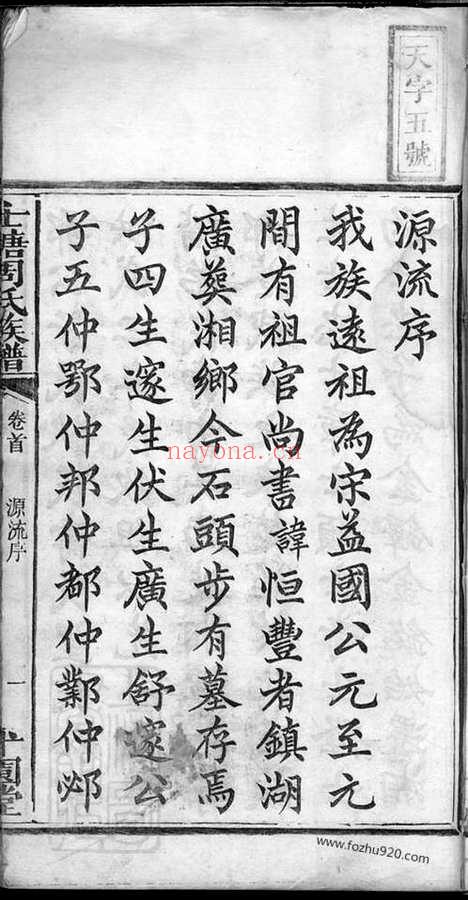 天字五號
源流序
我族遠祖為宋益國公元至元
間有祖官尚書諱恒豐者鎮湖
廣葬湘鄉今石頭步有墓存焉
子四生邃生伏生廣生舒邃公
子五仲鄂仲邦仲都仲鄴仲邲
塘周氏族譜
卷首
源流序
一
nayona.cn
www.fozhu920.com